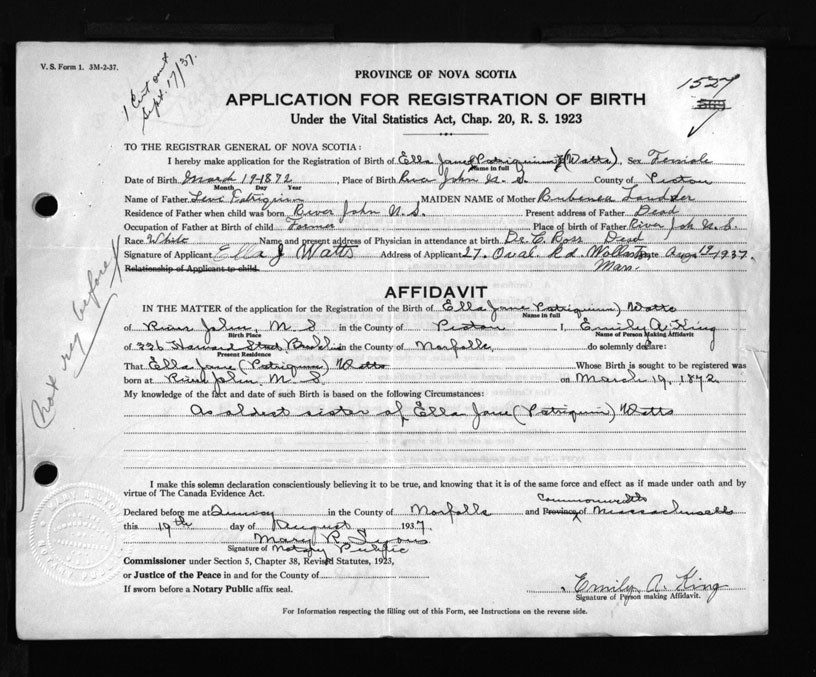 V. S. Form 1. 3M-2-37.
1 Cert out
Sept. 17/37.
PROVINCE OF NOVA SCOTIA
1527
APPLICATION FOR REGISTRATION OF BIRTH
Under the Vital Statistics Act, Chap. 20, R. S. 1923
TO THE REGISTRAR GENERAL OF NOVA SCOTIA:
I hereby make application for the Registration of Birth of Ella Jane Patriquin (Watts), Sex Female
Name in full
Date of Birth March 19-1872 Place of Birth River John N. S. County of Pictou
Month Day Year
Name of Father Levi Patriquin MAIDEN NAME of Mother
Residence of Father when child was born River John N. S. Present address of Father Dead
Occupation of Father at Birth of child Farmer Place of birth of Father River Joh N. S.
Race White Name and present address of Physician in attendance at birth Dr. C. Ross Dead
Signature of Applicant Ella J Watts Address of Applicant 27. Oval Rd. Date Aug 19-1937.
Mass.
Relationship of Applicant to child
Not reg before
AFFIDAVIT
IN THE MATTER of the application for the Registration of the Birth of Ella Jane Patriquin) Watts
Name in full
of River John, N. S in the County of Pictou I, Emily A. King
Birth Place Name of Person Making Affidavit
of 336 Street, in the County of Norfolk do solemnly declare:
Present Residence
That Ella Jane (Patriquin) Watts Whose Birth is sought to be registered was
born at River John, N. S. on March 19, 1872
My knowledge of the fact and date of such Birth is based on the following Circumstances:
As oldest sister of Ella Jane (Patriquin) Watts
I make this solemn declaration conscientiously believing it to be true, and knowing that it is of the same force and effect as if made under oath and by
virtue of The Canada Evidence Act.
Commonwealth
Declared before me at Quincy in the County of Norfolk and Province of Massachusetts
this 19th day of August 1937.
Mary R.
Signature of Notary Public
Commissioner under Section 5, Chapter 38, Revised Statutes, 1923,
or Justice of the Peace in and for the County of
If sworn before a Notary Public affix seal.
Emily A. King
Signature of Person making Affidavit.
For Information respecting the filling out of this Form, see Instructions on the reverse side.